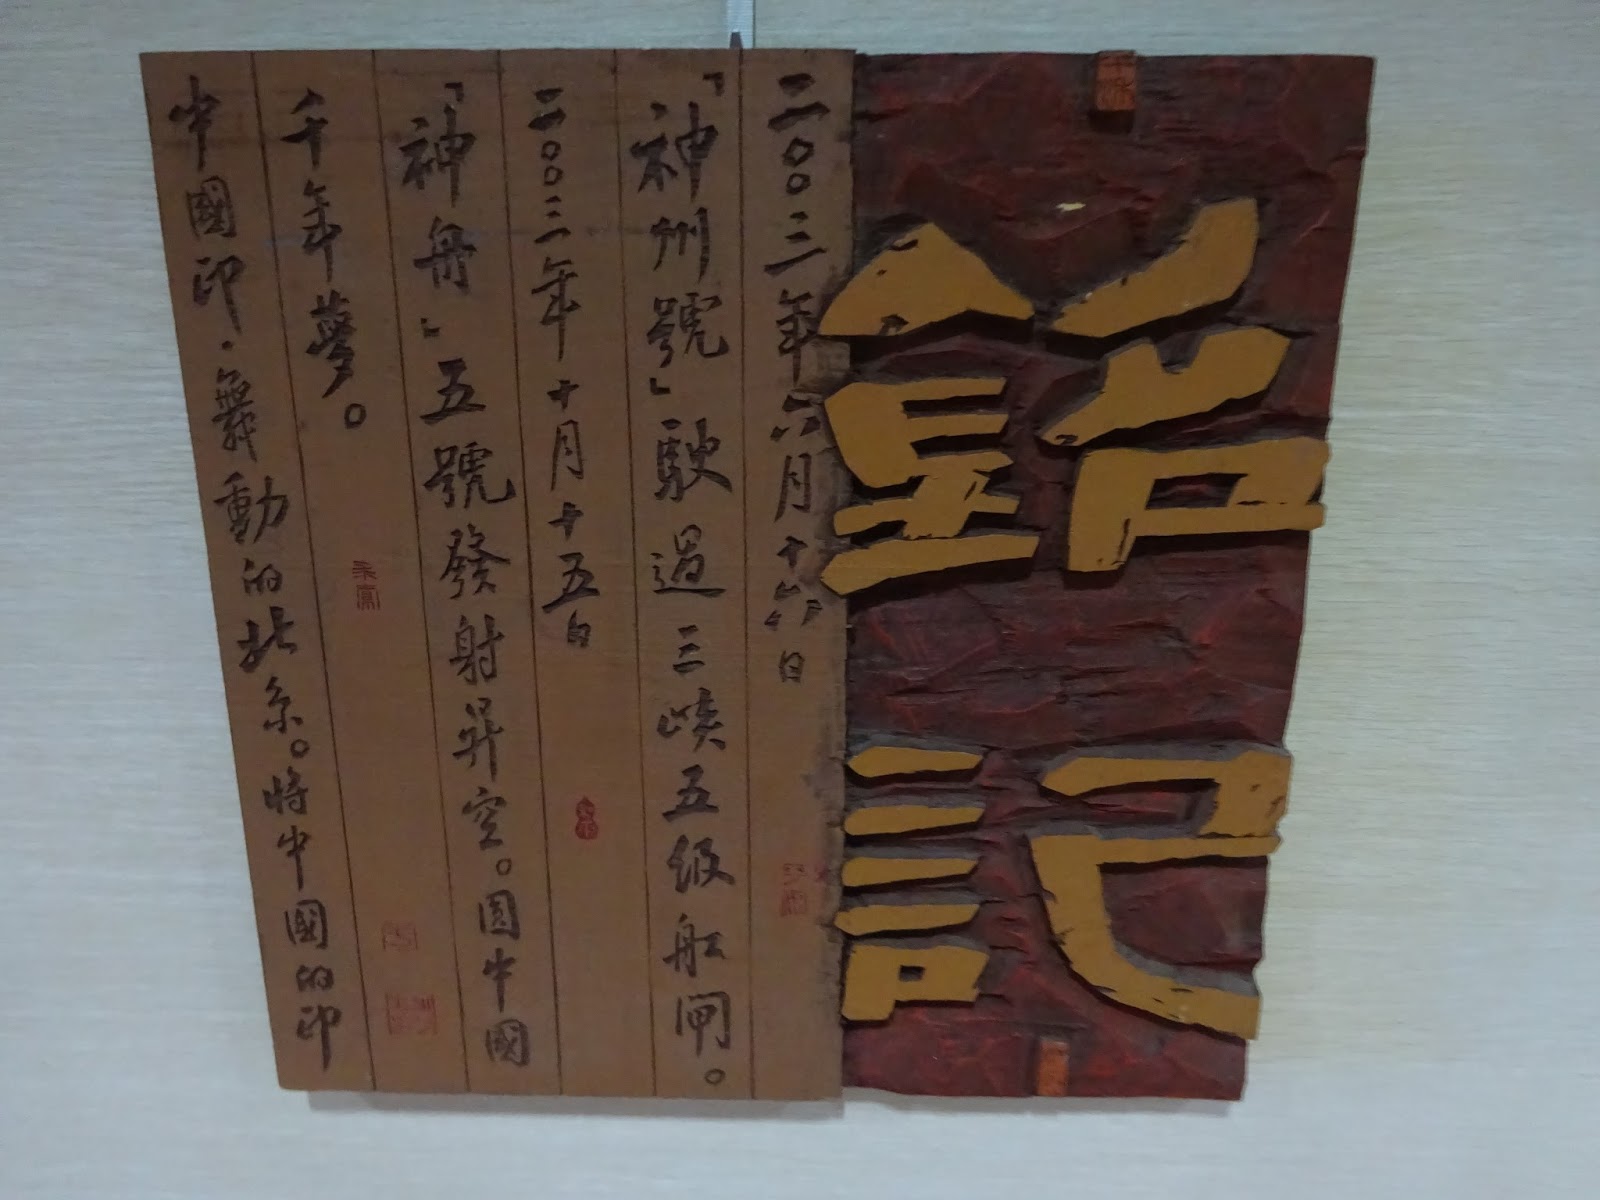 銘記
二〇〇三年六月十六日
「神州號」駛過三峽五級船闸。
二〇〇三年十月十五日
「神舟」五號發射昇空。圆中國
千年夢。
中國印·舞動的北京。将中國的印